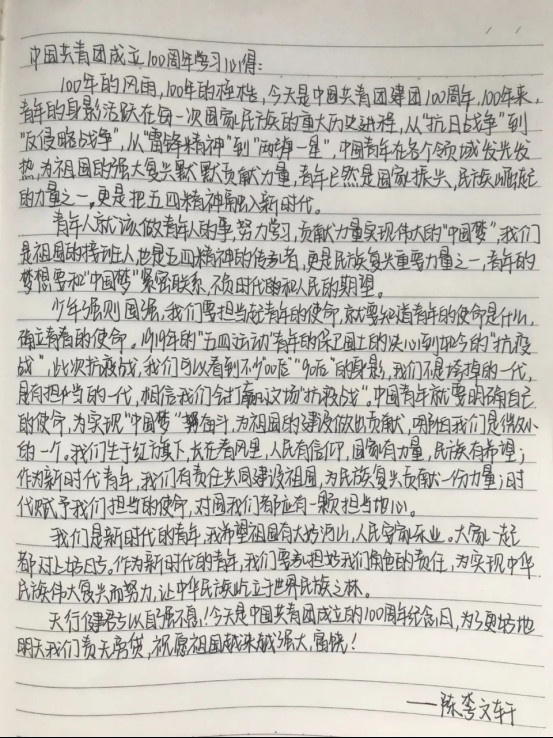 中国共青团成立100周年学习心得:
100年的风雨,100年的征程,今天是中国共青团建团100周年,100年来,
青年的身影活跃在每一次国家民族的重大历史进程,从“抗日战争”到
“反侵略战争”,从“雷锋精神”到“两弹一星”,中国青年在各个领域发光发
热,为祖国的强大复兴默默贡献力量,青年已然是国家振兴,民族崛起
的力量之一,更是把五四精神融入新时代。
青年人就该做青年人的事,努力学习,贡献力量实现伟大的“中国梦”,我们
是祖国的接班人,也是五四精神的传承者,更是民族复兴重要力量之一,青年的
梦想要和“中国梦”紧密联系,不负时代的和人民的期望。
少年强则国强,我们要担当起青年的使命,就要知道青年的使命是什么,
确立青春的使命。1919年的“五四运动”青年的保卫国土的决心到如今的“抗疫
战”,此次抗疫战,我们可以看到不少“00后”“90后”的身影,我们不是垮掉的一代,
是有担当的一代,相信我们会打赢这场“抗疫战”,中国青年就要明确自己
的使命,为实现“中国梦”努奋斗,为祖国的建设做出贡献,哪怕我们是微小
的一个。我们生于红方旗下,长在春风里,人民有信仰,国家有力量,民族有希望;
作为新时代青年,我们有责任共同建设祖国,为民族复兴贡献一份力量;时
代赋予我们担当的使命,对国我们都应有一颗担当地心。
我们是新时代的青年,我希望祖国有大好河山,人民安家乐业。大家一起
都对上好日子。作为新时代的青年,我们要承担好我们角色的责任,为实现中华
民族伟大复兴而努力,让中华民族屹立于世界民族之林。
天行健君子以自强不息!今天是中国共青团成立的100周年纪念日,为了更好地
明天我们责无旁贷,祝愿祖国越来越强大,富饶!
——陈李文轩